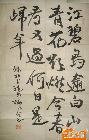 江碧鳥逾白山
青花欲燃今春
看又過何日是
歸年